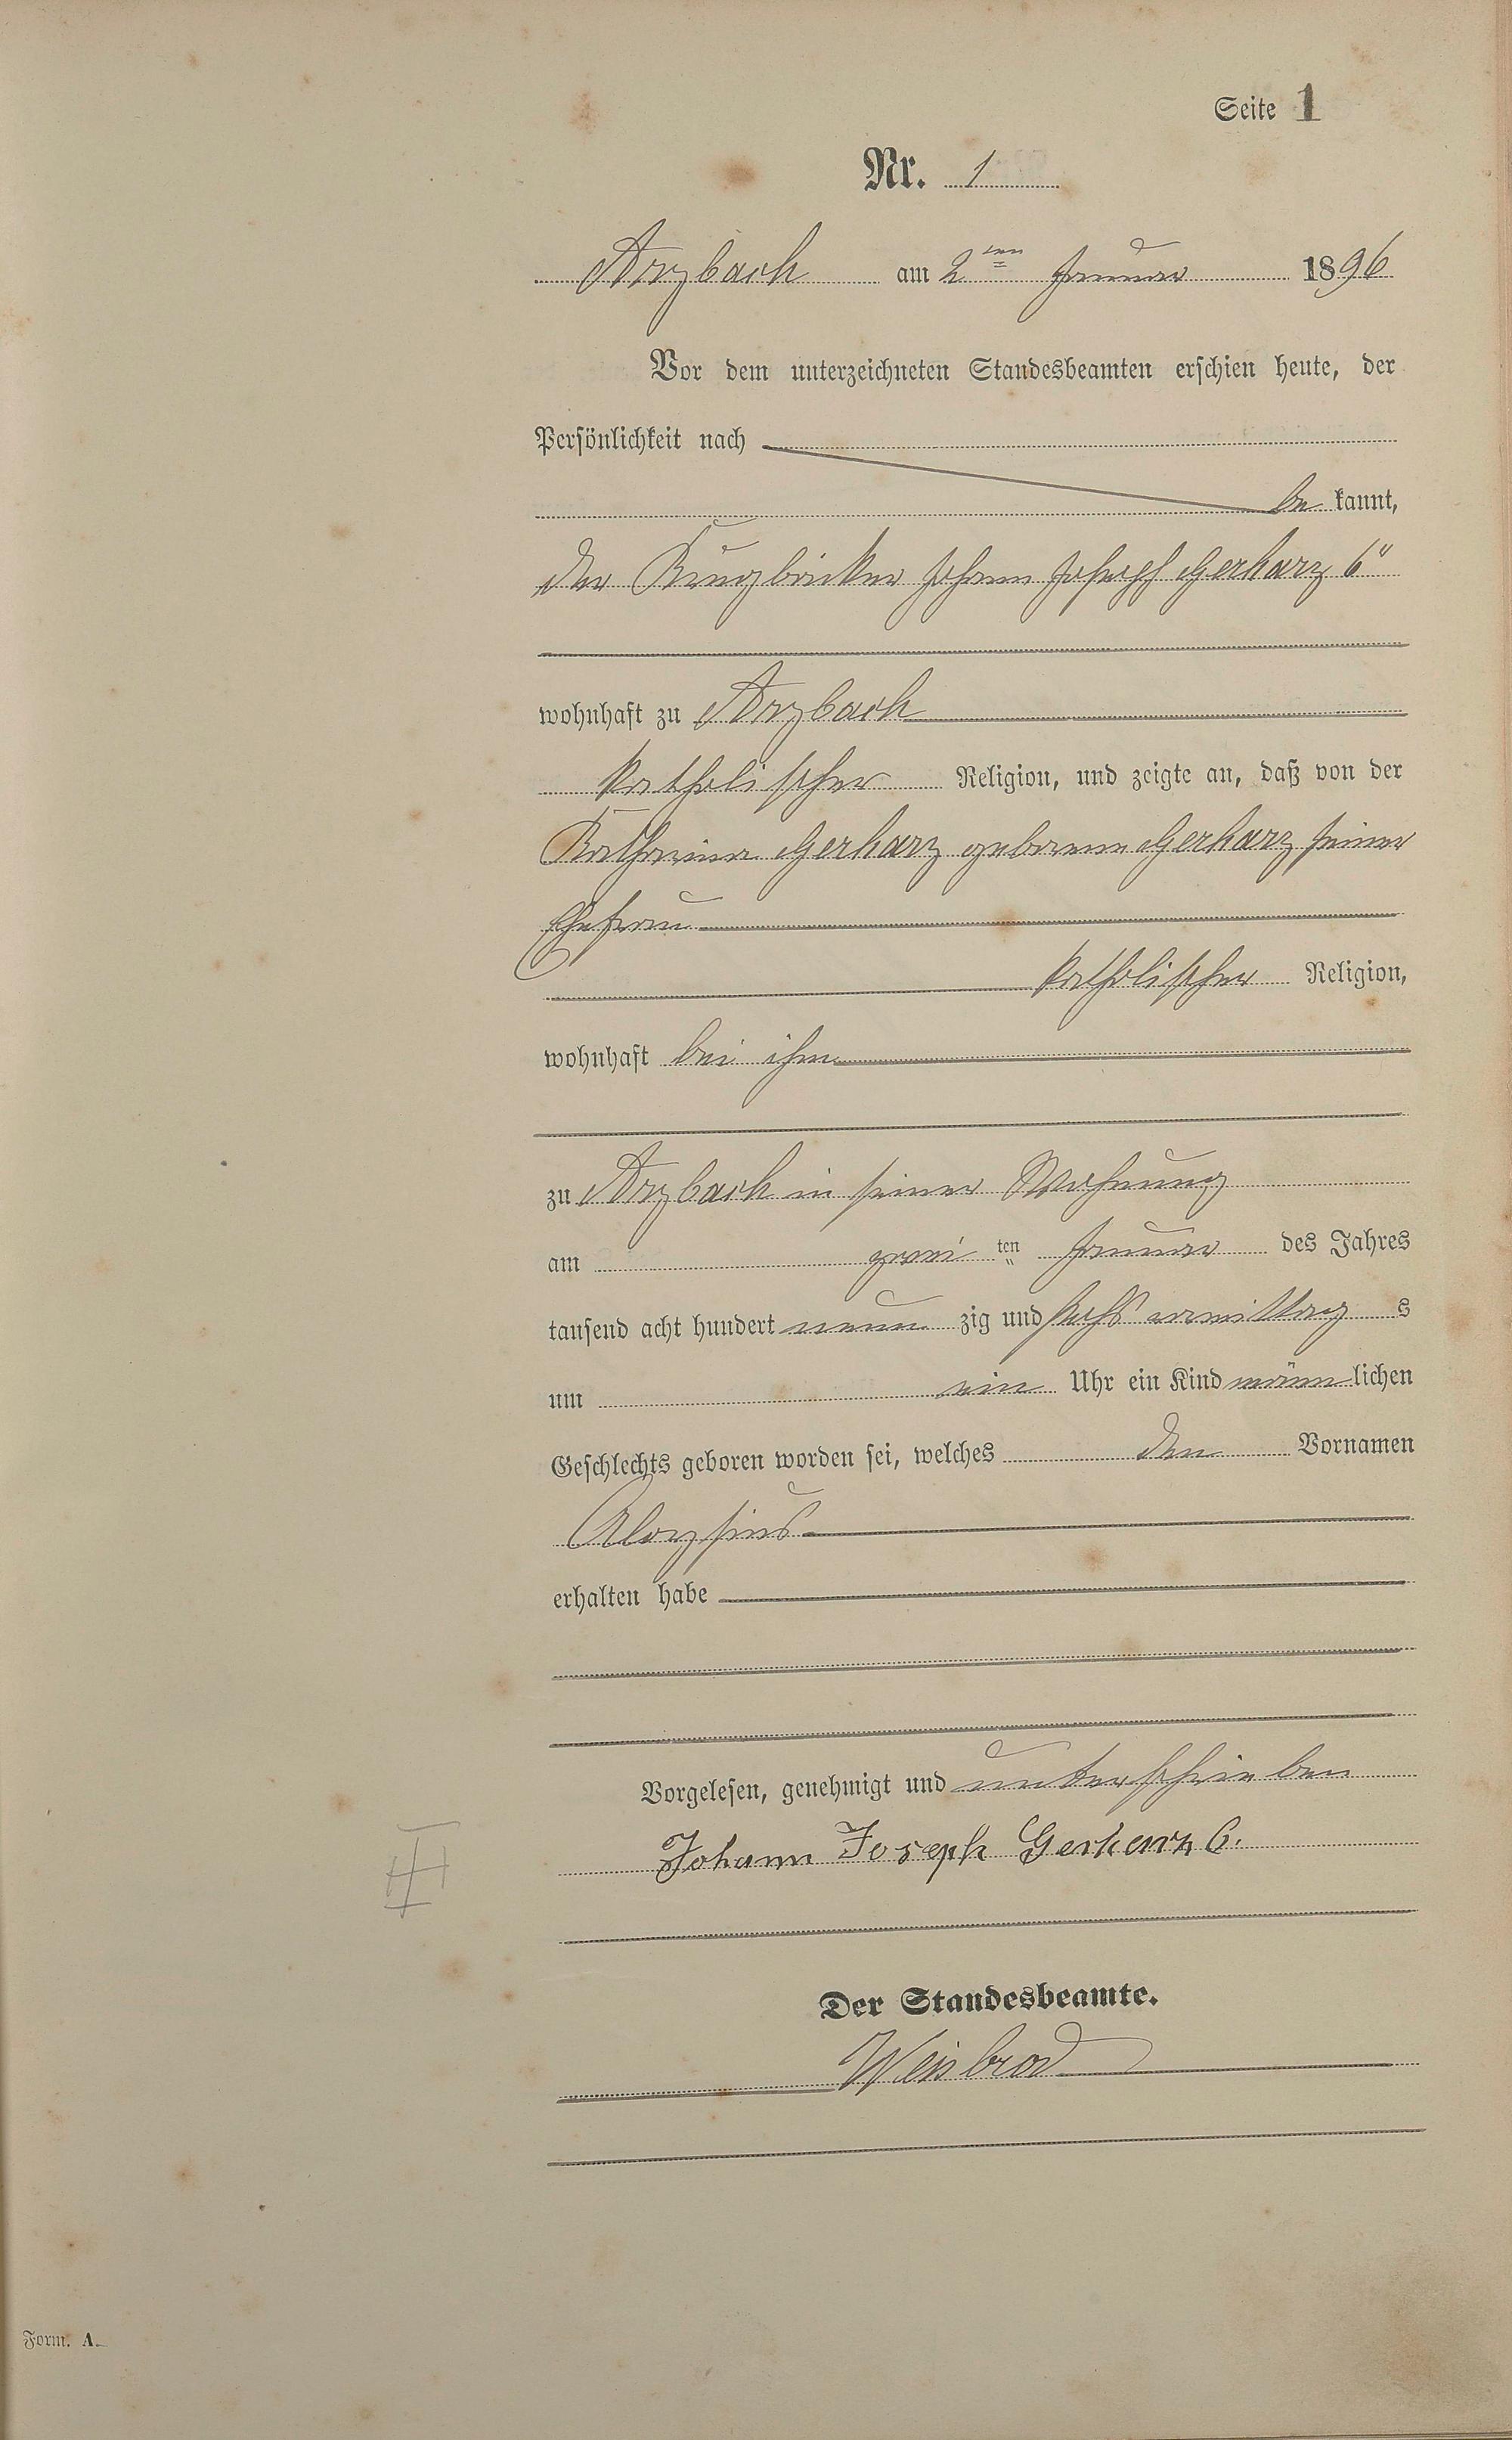 Seite 1
Nr. 1
Arzbach am 2ten Januar 1896
Vor dem unterzeichneten Standesbeamten erschien heute, der
Persönlichkeit nach
be kannt,
der Krugbäcker Johann Joseph Gerharz 6"
wohnhaft zu Arzbach
katholischer Religion, und zeigte an, daß von der
Katharina Gerharz geborene Gerharz seiner
Ehefrau
katholischer Religion,
wohnhaft bei ihm
zu Arzbach in seiner Wohnung
am zwei ten Januar des Jahres
tausend acht hundert neun zig und sechs vormittag s
um ein Uhr ein Kind männ lichen
Geschlechts geboren worden sei, welches den Vornamen
Aloysius
erhalten habe
Vorgelesen, genehmigt und unterschrieben
Johann Joseph Gerharz 6.
Der Standesbeamte.
Weisbrod
Form. A.